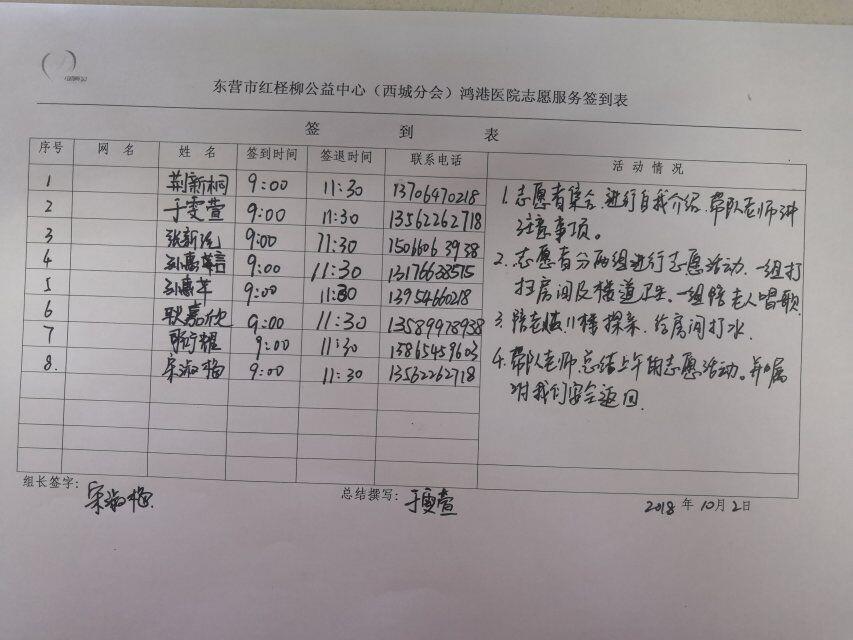 东营市红柽柳公益中心（西城分会）鸿港医院志愿服务签到表
签 到 表
序号 网 名 姓 名 签到时间 签退时间 联系电话 活 动 情 况
1 荆新桐 9:00 11:30 13706470218
2 于雯萱 9:00 11:30 13562262718
3 9:00 11:30 15066063938
4 9:00 11:30 13176638515
5 9:00 11:30 13954660218
6 耿嘉欣 9:00 11:30 13589978938
7 9:00 11:30 15865459603
8. 宋淑梅 9:00 11:30 13562262718
1.志愿者集合,进行自我介绍,带队老师讲
注意事项。
2.志愿者分两组进行志愿活动.一组打
扫房间及楼道卫生.一组陪老人唱歌.
3.陪老 楼探亲.给房间打水.
4.带队老师总结上午的志愿活动。并嘱
咐我们安全返回.
组长签字: 宋淑梅 总结撰写: 于雯萱 2018 年 10月 2日